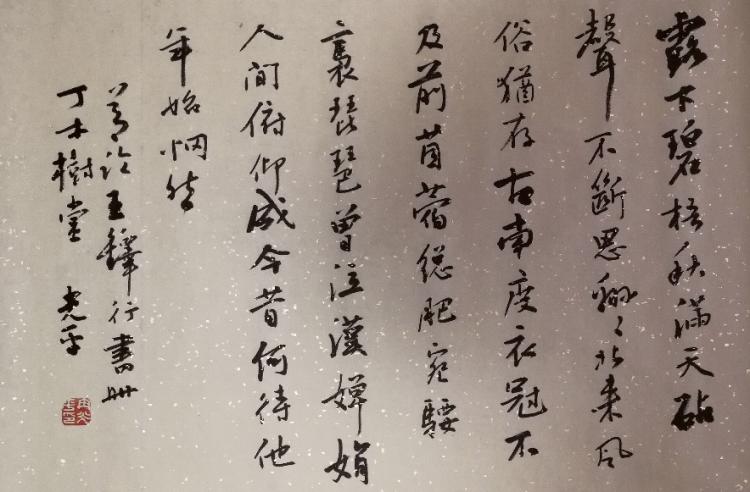 露下碧梧秋滿天砧
聲不斷思綿〻北來風
俗猶存古南度衣冠不
及前苜蓿總肥宛騕
褭琵琶曾泣漢嬋娟
人間俯仰成今昔何待他
年始惘然
臨王鐸行書冊
木樹堂 光平